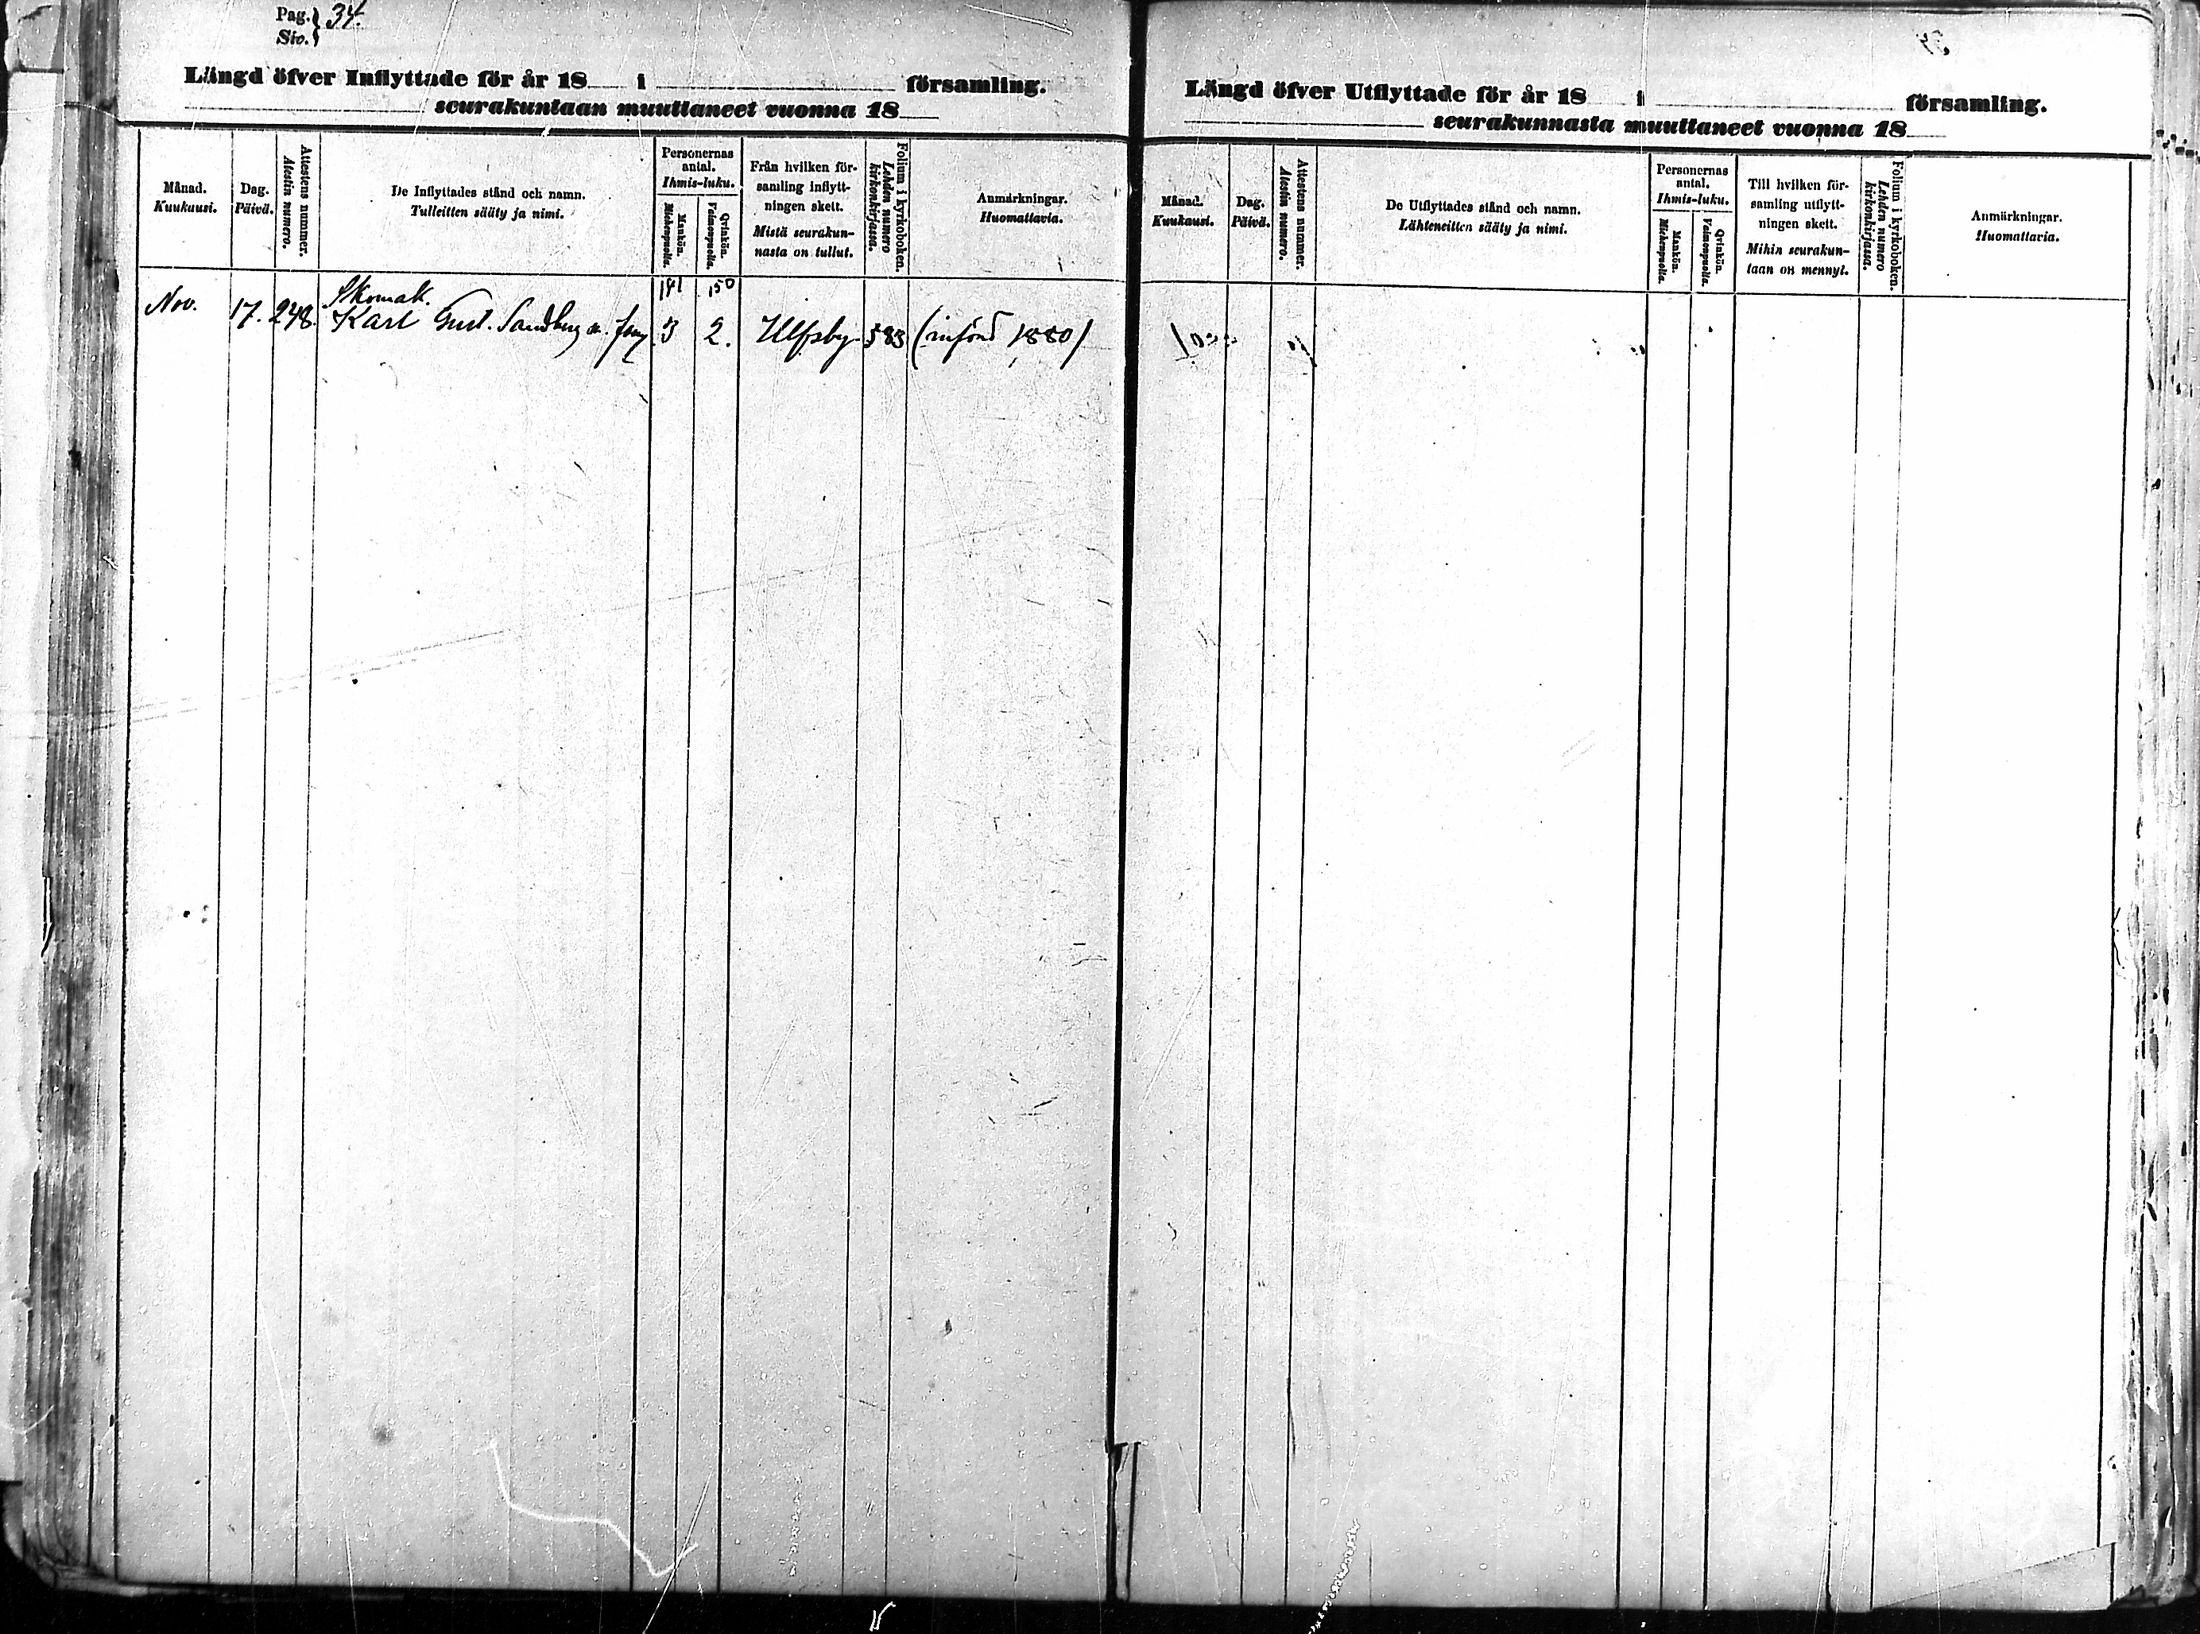 Pag. } 34.
Siv. }
Längd öfver Inflyttade för år 18 i församling.
seurakuntaan muuttaneet vuonna 18
Månad.
Kuukausi.
Dag.
Päivä.
Attestens nummer.
Atestin numero.
De Inflyttades stånd och namn.
Tulleitten sääty ja nimi.
Personernas
antal.
Ihmis-luku.
Mankön.
Miehenpuolia.
Qvinkön.
Vaimonpuolia.
Från hvilken för-
samling inflytt-
ningen skett.
Mistä seurakun-
nasta on tullut.
Folium i kyrkoboken.
Lehden numero
kirkonkirjassa.
Anmärkningar.
Huomattavia.
141 150
Skomak.
Nov. 17. 248. Karl Gust. Sandberg m. famj 3 2. Ulfsby 583 (införd 1880)
Längd öfver Utflyttade för år 18 i församling.
seurakunnasta muuttaneet vuonna 18
Månad.
Kuukausi.
Dag.
Päivä.
Attestens nummer.
Atestin numero.
De Utflyttades stånd och namn.
Lähteneitten sääty ja nimi.
Personernas
antal.
Ihmis-luku.
Mankön.
Miehenpuolia.
Qvinkön.
Vaimonpuolia.
Till hvilken för-
samling utflytt-
ningen skett.
Mihin seurakun-
taan on mennyt.
Folium i kyrkoboken.
Lehden numero
kirkonkirjassa.
Anmärkningar.
Huomattavia.